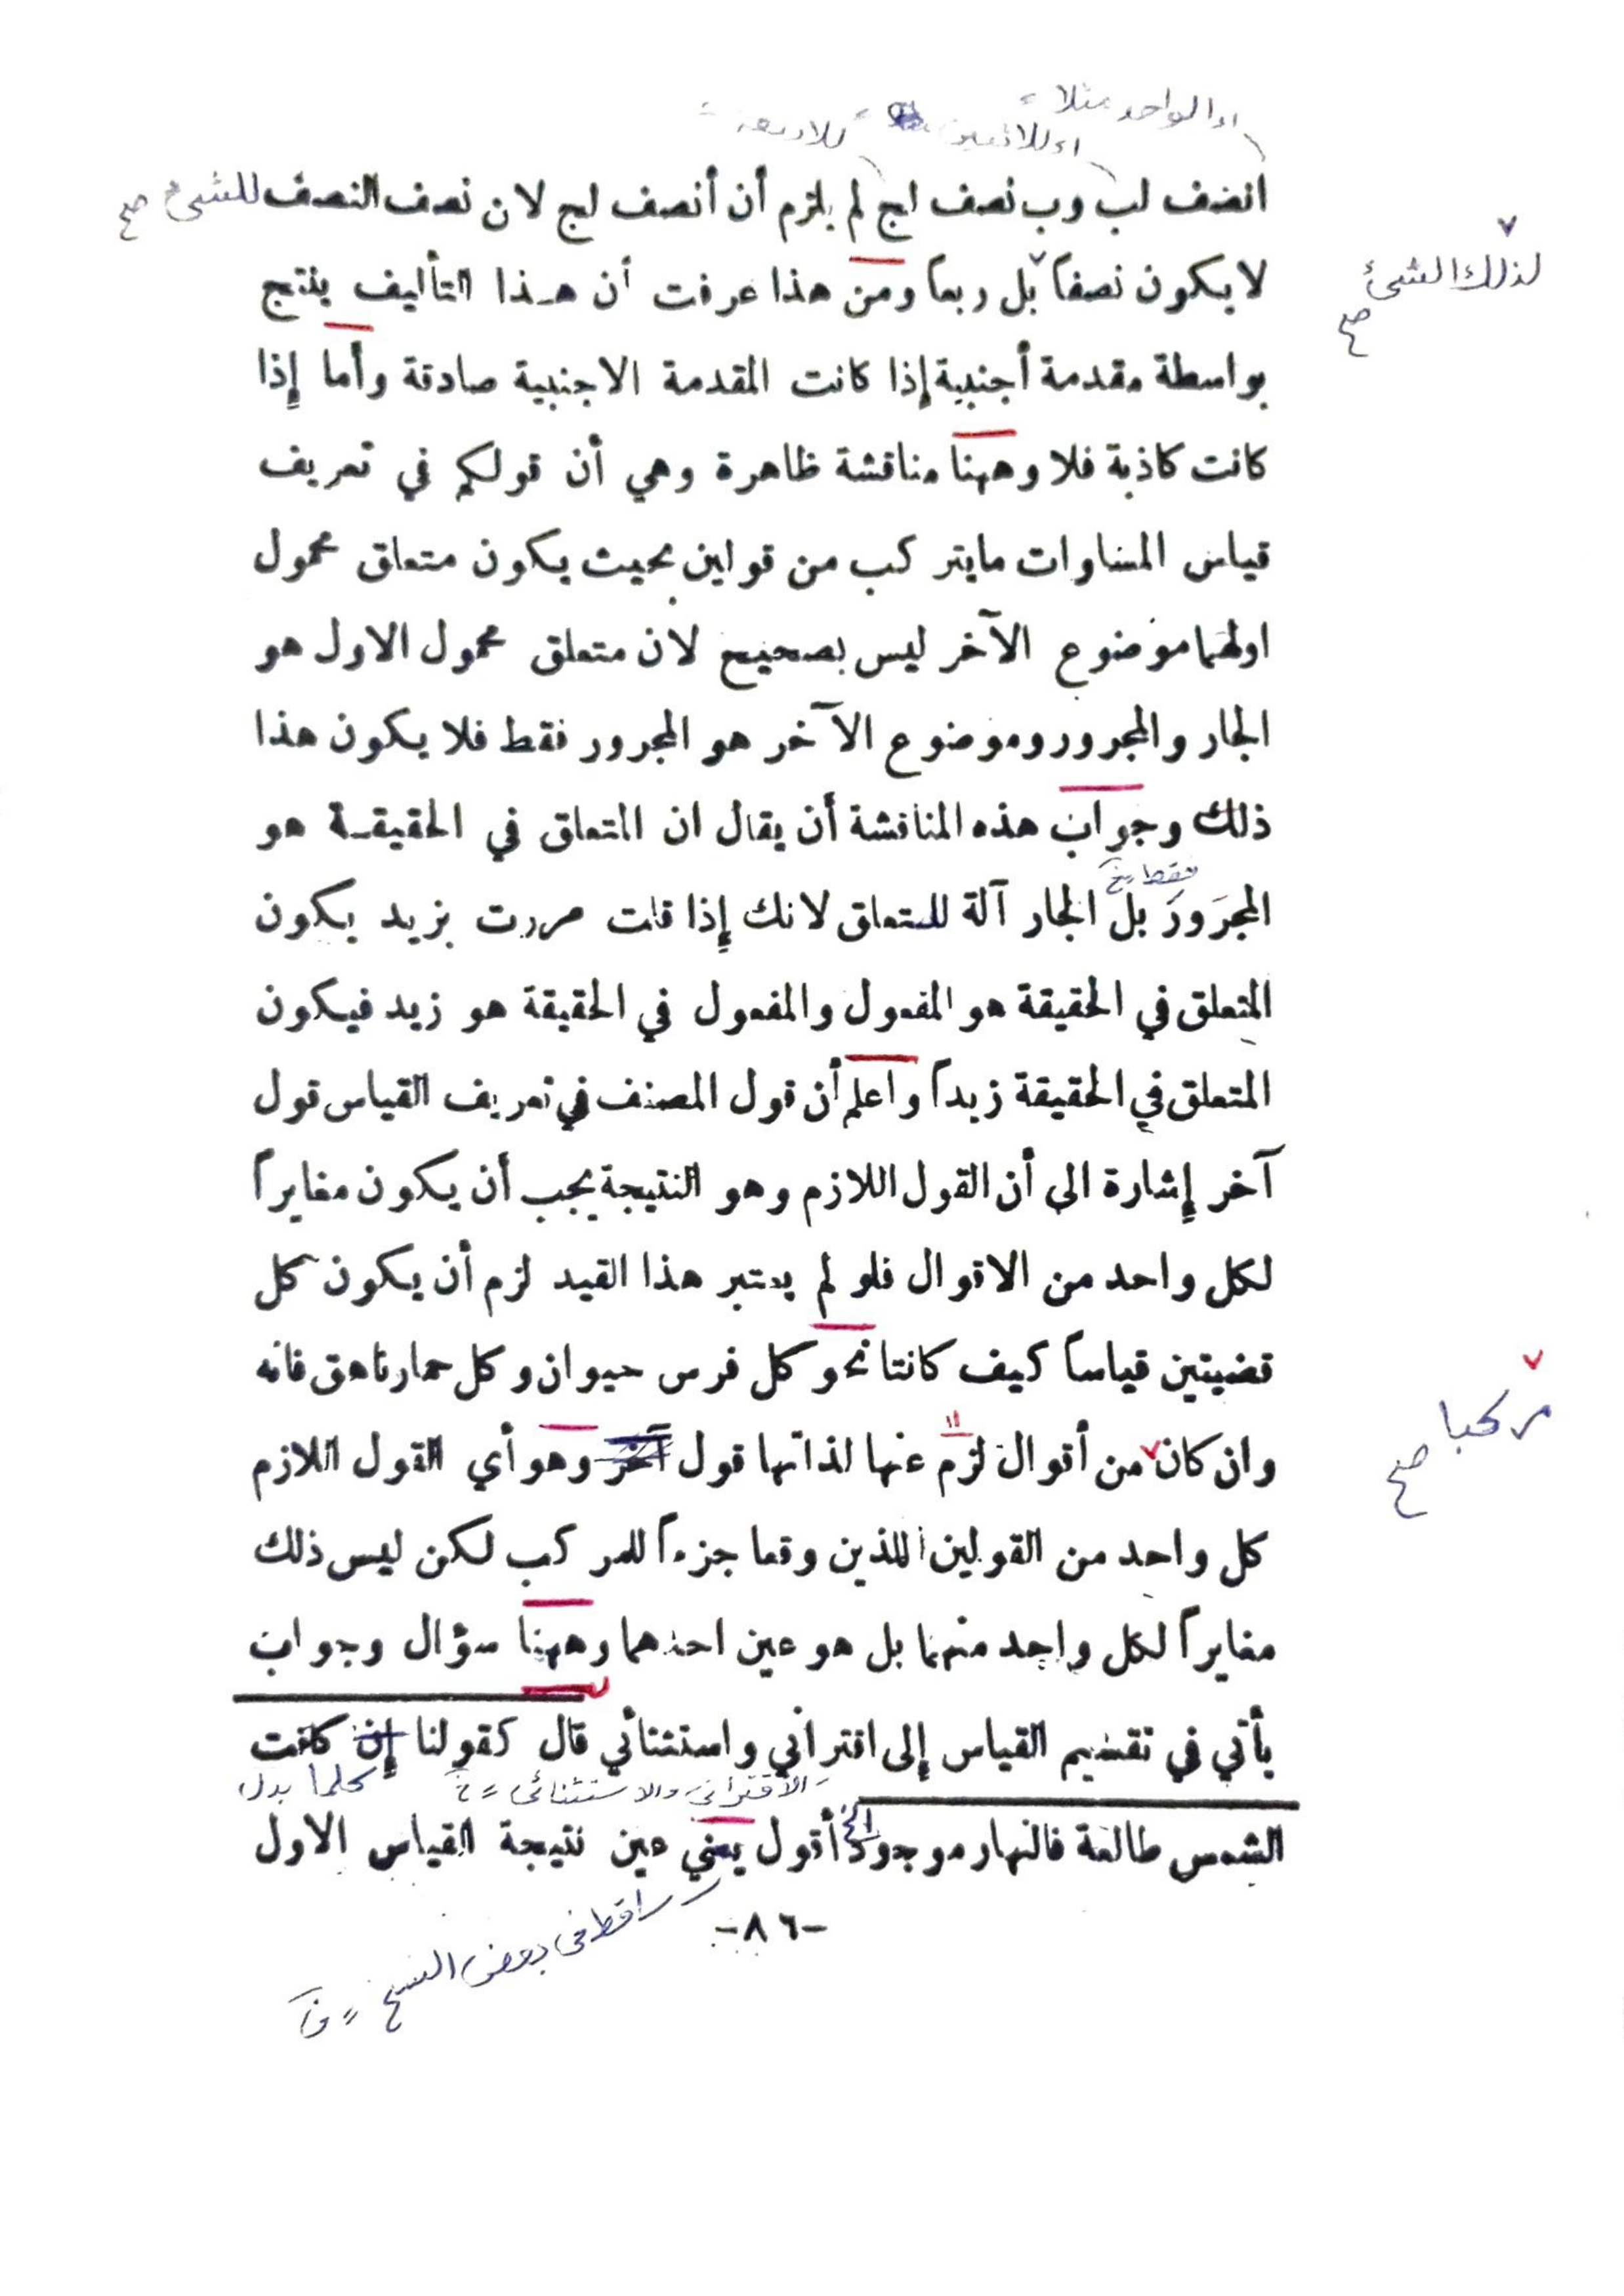 اء الواحد مثلا
اء للاثنين للاربعة
انصف لب وب نصف لج لم يلزم أن أنصف لج لان نصف النصف للشئ صح
لا يكون نصفاً بل ربعاً ومن هذا عرفت أن هذا التأليف ينتج
لذلك الشئ صح
بواسطة مقدمة أجنبية إذا كانت المقدمة الاجنبية صادقة وأما إذا
كانت كاذبة فلا وههنا مناقشة ظاهرة وهي أن قولكم في تعريف
قياس المساوات ما يتركب من قولين بحيث يكون متعلق محمول
اولهما موضوع الآخر ليس بصحيح لان متعلق محمول الاول هو
الجار والمجرور وموضوع الآخر هو المجرور فقط فلا يكون هذا
ذلك وجواب هذه المناقشة أن يقال ان المتعلق في الحقيقة هو
فقط خ
المجرور بل الجار آلة للتعلق لانك إذا قلت مررت بزيد يكون
المتعلق في الحقيقة هو المفعول والمفعول في الحقيقة هو زيد فيكون
المتعلق في الحقيقة زيداً واعلم أن قول المصنف في تعريف القياس قول
آخر إشارة الى أن القول اللازم وهو النتيجة يجب أن يكون مغايراً
لكل واحد من الاقوال فلو لم يعتبر هذا القيد لزم أن يكون كل
قضيتين قياساً كيف كانتا نحو كل فرس حيوان وكل حمار ناهق فانه
مركبا صح
وان كان من أقوال لزم عنها لذاتها قول آخر وهو أي القول اللازم
كل واحد من القولين اللذين وقعا جزءاً للمركب لكن ليس ذلك
مغايراً لكل واحد منهما بل هو عين احدهما وههنا سؤال وجواب
يأتي في تقسيم القياس إلى اقتراني واستثنائي قال كقولنا إن كانت
الاقترانى والاستثنائى خ كلما بدل
الشمس طالعة فالنهار موجود الخ أقول يعني عين نتيجة القياس الاول
-٨٦-
ساقط فى بعض النسخ